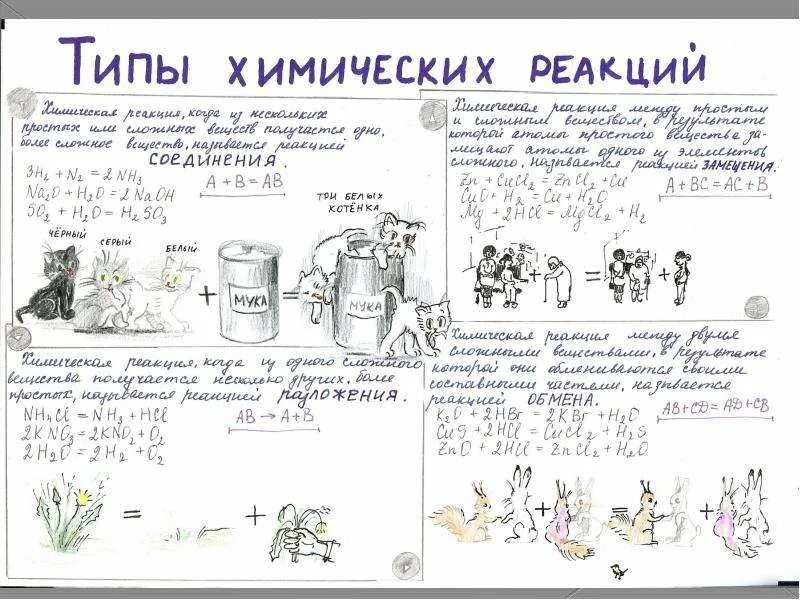 Типы химических реакций
Химическая реакция, когда из нескольких
простых или сложных веществ получается одно,
более сложное вещество, называется реакцией
СОЕДИНЕНИЯ.
3H₂ + N₂ = 2NH₃
Na₂O + H₂O = 2NaOH
SO₂ + H₂O = H₂SO₃
A + B = AB
ЧЁРНЫЙ
СЕРЫЙ
БЕЛЫЙ
МУКА
ТРИ БЕЛЫХ
КОТЁНКА
МУКА
+
=
Химическая реакция между простым
и сложным веществом, в результате
которой атомы простого вещества за-
мещают атомы одного из элементов
сложного, называется реакцией ЗАМЕЩЕНИЯ.
Zn + CuCl₂ = ZnCl₂ + Cu
CuO + H₂ = Cu + H₂O
Mg + 2HCl = MgCl₂ + H₂
A + BC = AC + B
+ = +
Химическая реакция, когда из одного сложного
вещества получается несколько других, более
простых, называется реакцией РАЗЛОЖЕНИЯ.
NH₄Cl = NH₃ + HCl
2KNO₃ = 2KNO₂ + O₂
2H₂O = 2H₂ + O₂
AB → A + B
= +
Химическая реакция между двумя
сложными веществами, в результате
которой они обмениваются своими
составными частями, называется
реакцией ОБМЕНА.
K₂O + 2HBr = 2KBr + H₂O
CuS + 2HCl = CuCl₂ + H₂S
ZnO + 2HCl = ZnCl₂ + H₂O
AB + CD = AD + CB
+ = +